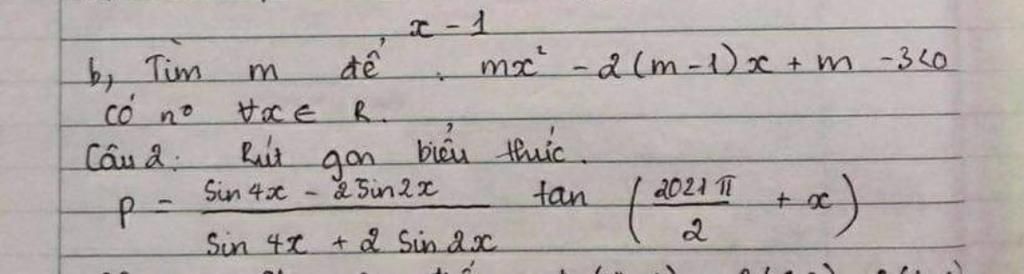 x - 1
b, Tìm m để : mx² - 2(m-1)x + m - 3<0
Có n° ∀x ∈ R.
Câu 2: Rút gọn biểu thức.
P = \frac{Sin 4x - 2Sin2x}{Sin 4x + 2 Sin 2x} tan (\frac{2021π}{2} + x)